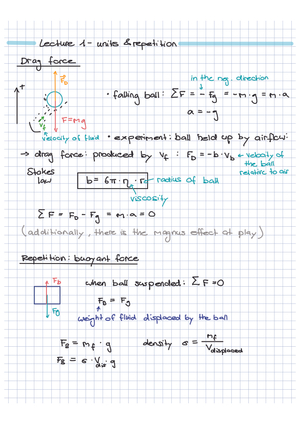 Lecture 1 - units & repetition
Drag force
in the neg. direction
• falling ball: ΣF = - Fg = -m·g = m·a
a = -g
F=mg
velocity of fluid • experiment: ball held up by airflow:
→ drag force: produced by vf : FD = -b·vb ← velocity of the ball relative to air
Stokes law b = 6π·η·r ← radius of ball
viscosity
ΣF = FD - Fg = m·a = 0
(additionally, there is the magnus effect at play)
Repetition: buoyant force
FB
when ball suspended: ΣF = 0
FB = Fg
Fg
weight of fluid displaced by the ball
FB = mf · g density σ = mf / Vdisplaced
FB = σ · Vdis · g